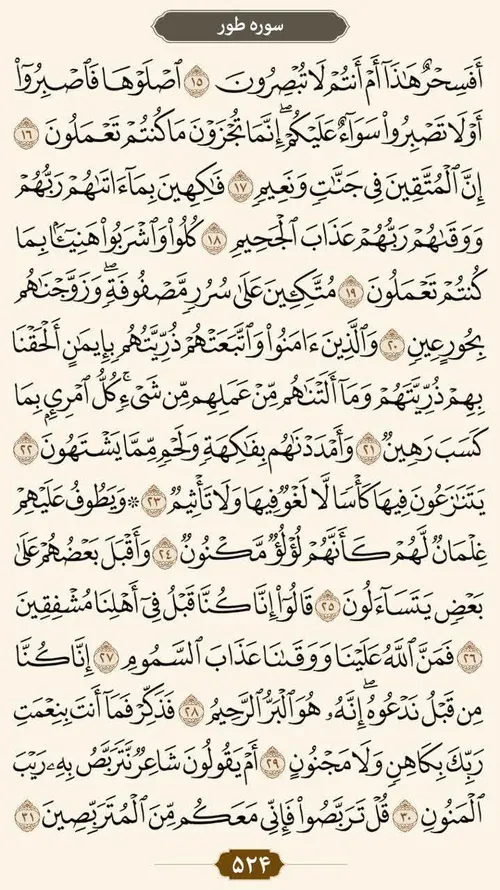 سوره طور
أَفَسِحْرٌ هَٰذَآ أَمْ أَنتُمْ لَا تُبْصِرُونَ ۝١٥ ٱصْلَوْهَا فَٱصْبِرُوٓا۟
أَوْ لَا تَصْبِرُوا۟ سَوَآءٌ عَلَيْكُمْ ۖ إِنَّمَا تُجْزَوْنَ مَا كُنتُمْ تَعْمَلُونَ ۝١٦
إِنَّ ٱلْمُتَّقِينَ فِى جَنَّٰتٍ وَنَعِيمٍ ۝١٧ فَٰكِهِينَ بِمَآ ءَاتَىٰهُمْ رَبُّهُمْ
وَوَقَىٰهُمْ رَبُّهُمْ عَذَابَ ٱلْجَحِيمِ ۝١٨ كُلُوا۟ وَٱشْرَبُوا۟ هَنِيٓـًٔۢا بِمَا
كُنتُمْ تَعْمَلُونَ ۝١٩ مُتَّكِـِٔينَ عَلَىٰ سُرُرٍ مَّصْفُوفَةٍ ۖ وَزَوَّجْنَٰهُم
بِحُورٍ عِينٍ ۝٢٠ وَٱلَّذِينَ ءَامَنُوا۟ وَٱتَّبَعَتْهُمْ ذُرِّيَّتُهُم بِإِيمَٰنٍ أَلْحَقْنَا
بِهِمْ ذُرِّيَّتَهُمْ وَمَآ أَلَتْنَٰهُم مِّنْ عَمَلِهِم مِّن شَىْءٍ ۚ كُلُّ ٱمْرِئٍۭ بِمَا
كَسَبَ رَهِينٌ ۝٢١ وَأَمْدَدْنَٰهُم بِفَٰكِهَةٍ وَلَحْمٍ مِّمَّا يَشْتَهُونَ ۝٢٢
يَتَنَٰزَعُونَ فِيهَا كَأْسًا لَّا لَغْوٌ فِيهَا وَلَا تَأْثِيمٌ ۝٢٣ * وَيَطُوفُ عَلَيْهِمْ
غِلْمَانٌ لَّهُمْ كَأَنَّهُمْ لُؤْلُؤٌ مَّكْنُونٌ ۝٢٤ وَأَقْبَلَ بَعْضُهُمْ عَلَىٰ
بَعْضٍ يَتَسَآءَلُونَ ۝٢٥ قَالُوٓا۟ إِنَّا كُنَّا قَبْلُ فِىٓ أَهْلِنَا مُشْفِقِينَ
۝٢٦ فَمَنَّ ٱللَّهُ عَلَيْنَا وَوَقَىٰنَا عَذَابَ ٱلسَّمُومِ ۝٢٧ إِنَّا كُنَّا
مِن قَبْلُ نَدْعُوهُ ۖ إِنَّهُۥ هُوَ ٱلْبَرُّ ٱلرَّحِيمُ ۝٢٨ فَذَكِّرْ فَمَآ أَنتَ بِنِعْمَتِ
رَبِّكَ بِكَاهِنٍ وَلَا مَجْنُونٍ ۝٢٩ أَمْ يَقُولُونَ شَاعِرٌ نَّتَرَبَّصُ بِهِۦ رَيْبَ
ٱلْمَنُونِ ۝٣٠ قُلْ تَرَبَّصُوا۟ فَإِنِّى مَعَكُم مِّنَ ٱلْمُتَرَبِّصِينَ ۝٣١
۵۲۴